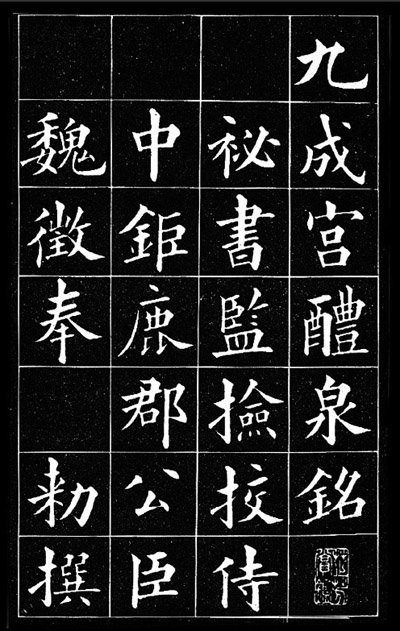 九成宮醴泉銘
祕書監撿挍侍
中鉅鹿郡公臣
魏徵奉 勑撰